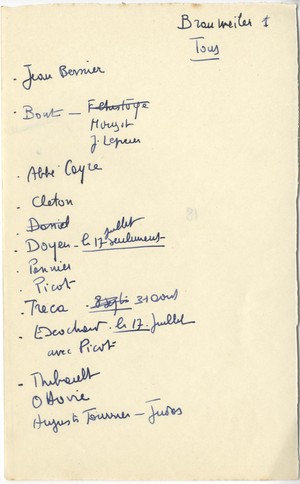 Brauweiler 1
Tous
- Jean Bernier
- Bout -
Mouzot
J. Lepreux
- Abbé Cayre
- Cleton
- Daniel
- Doyen - le 17 juillet seulement
- Pannier
- Picot
- Treca - 31 août
- Escochard - le 17 - juillet
avec Picot
- Thibault
Ottavie
Auguste Tournier - Judas